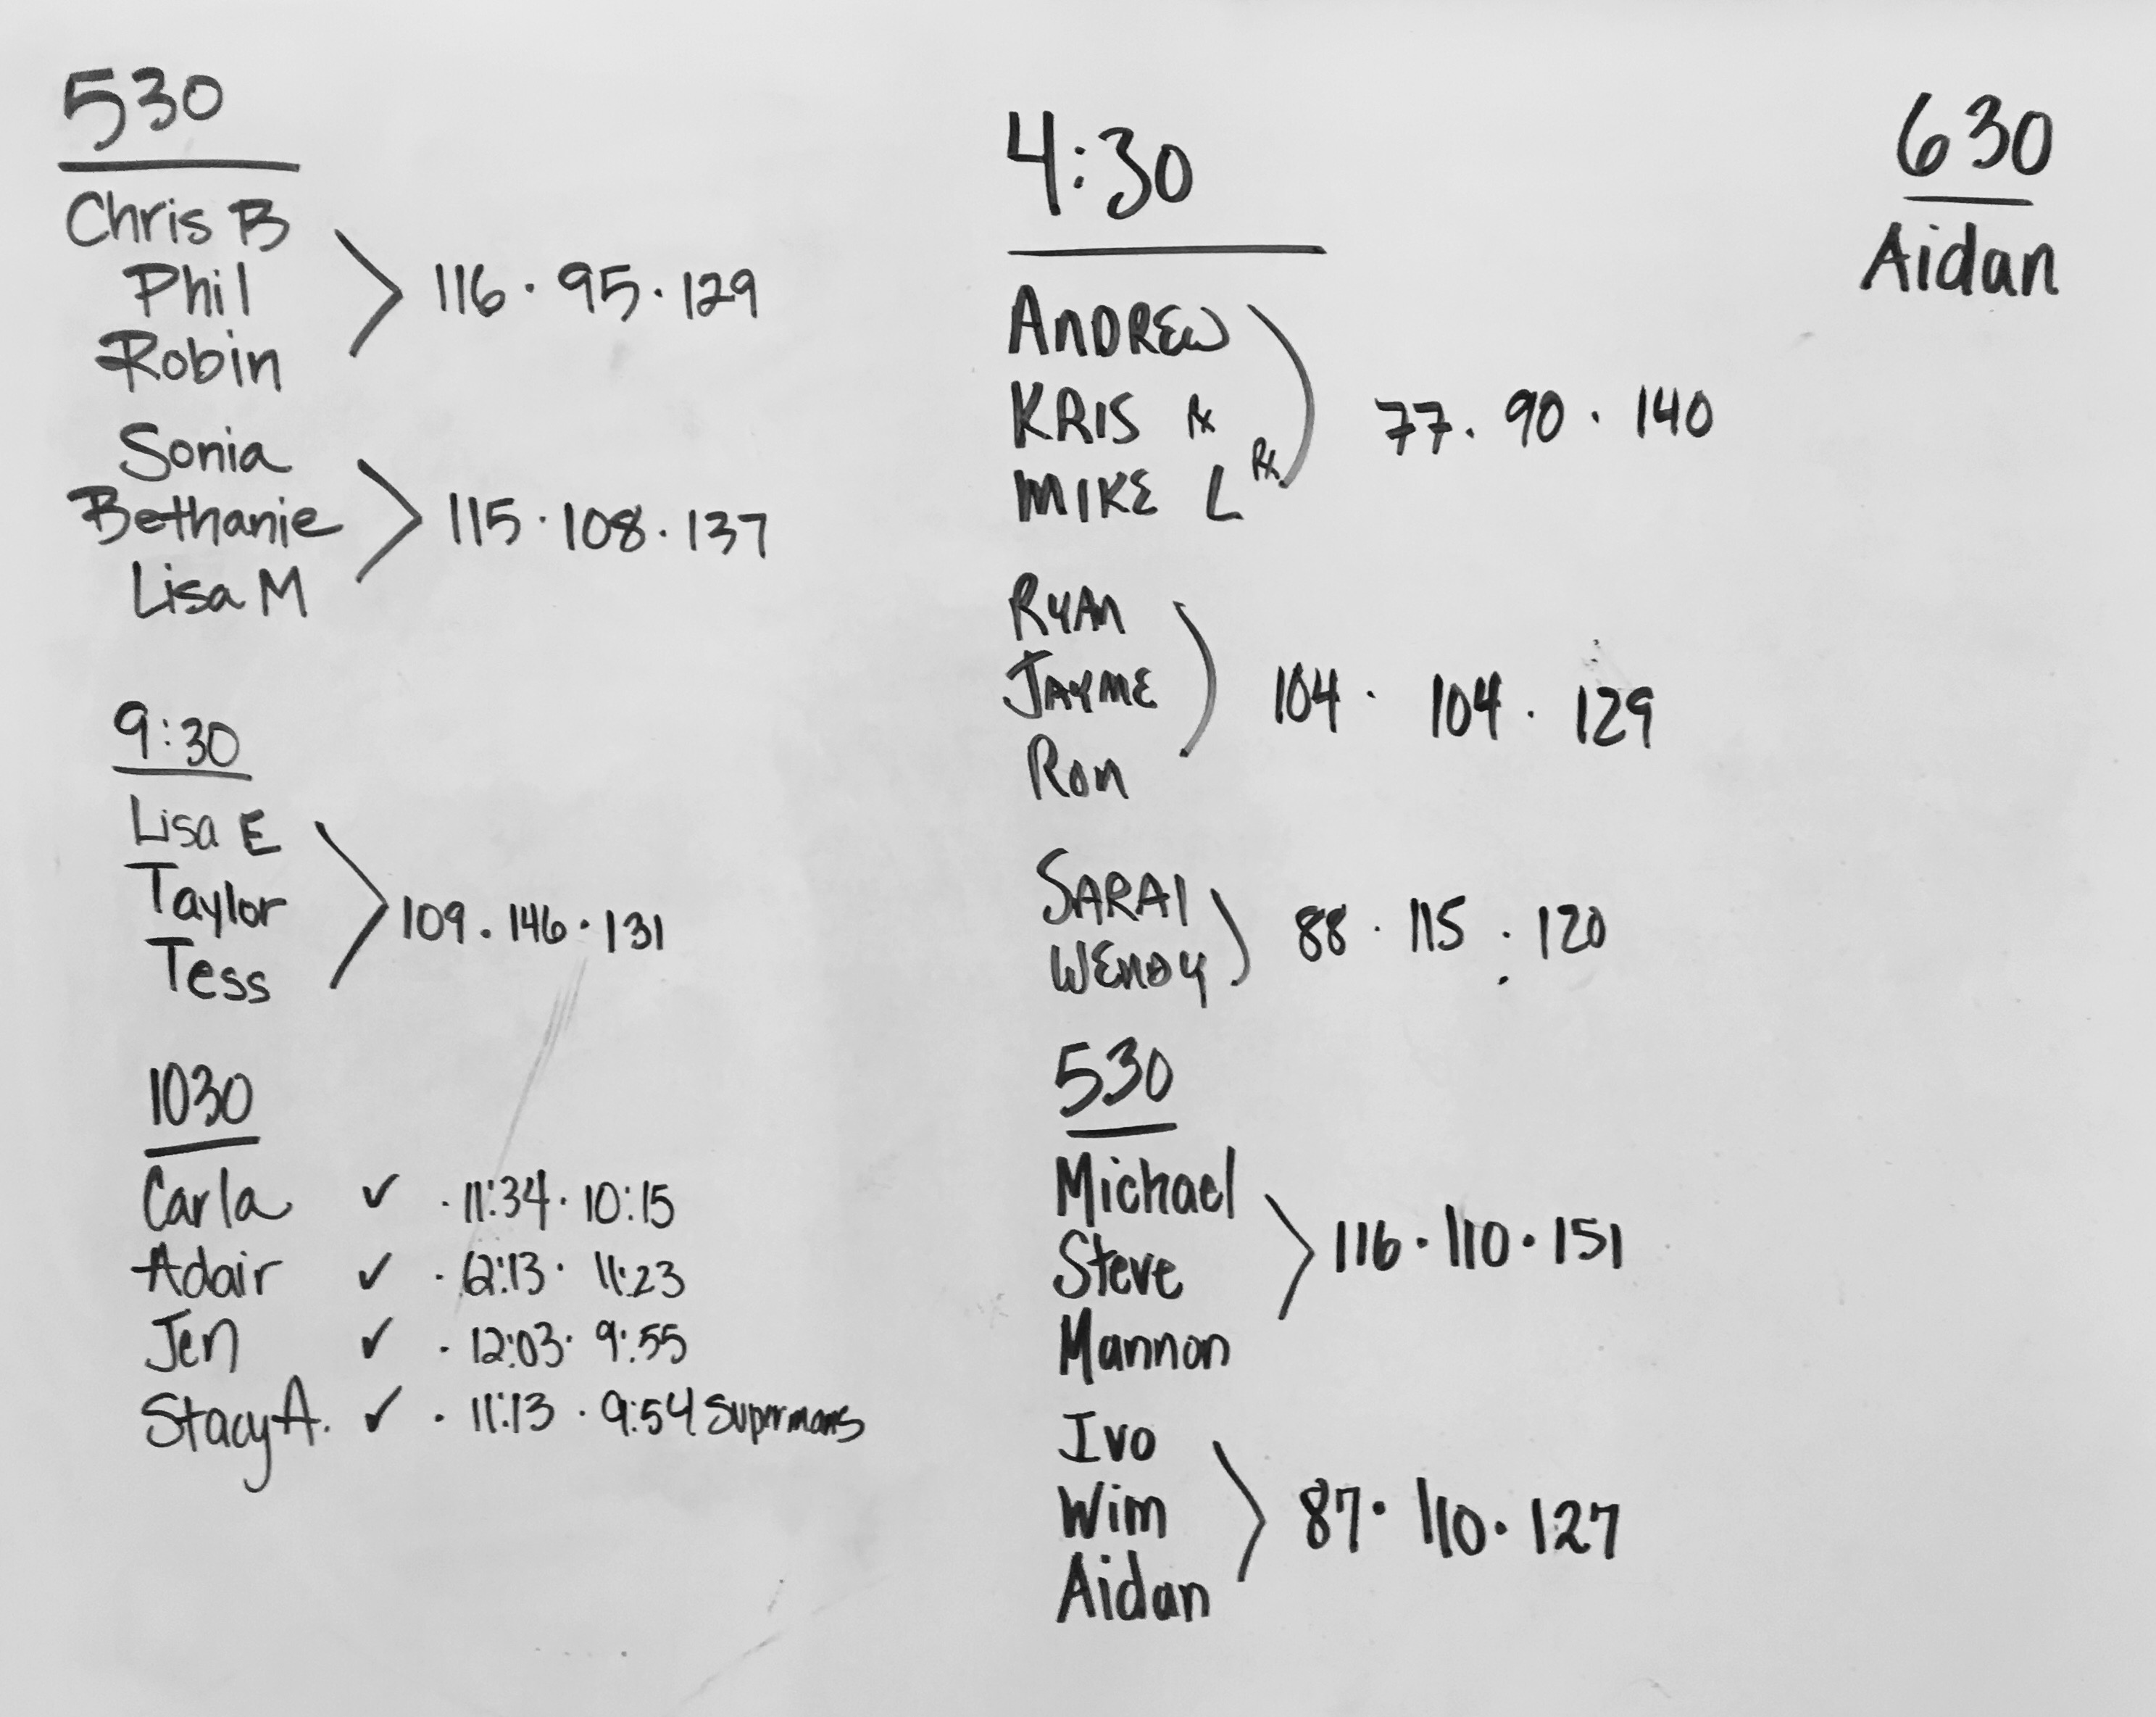 530
Chris B
Phil
Robin
116 · 95 · 129
Sonia
Bethanie
Lisa M
115 · 108 · 137
9:30
Lisa E
Taylor
Tess
109 · 146 · 131
1030
Carla ✓ · 11:34 · 10:15
Adair ✓ · 12:13 · 11:23
Jen ✓ · 12:03 · 9:55
Stacy A. ✓ · 11:13 · 9:54 Supermans
4:30
ANDREW
KRIS Rx
MIKE L Rx
77 · 90 · 140
RYAN
JAYME
RON
104 · 104 · 129
SARAI
WENDY
88 · 115 · 120
530
Michael
Steve
Mannon
116 · 110 · 151
Ivo
Wim
Aidan
87 · 110 · 127
630
Aidan